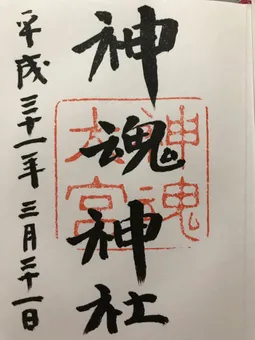 神魂神社
神魂
大宮
平成三十一年三月二十一日